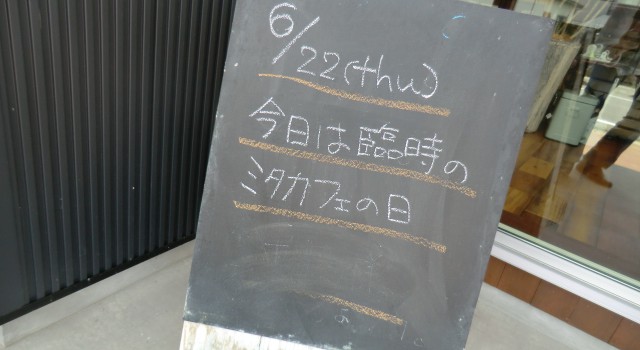 6/22(thu)
今日は臨時の
ミタカフェの日